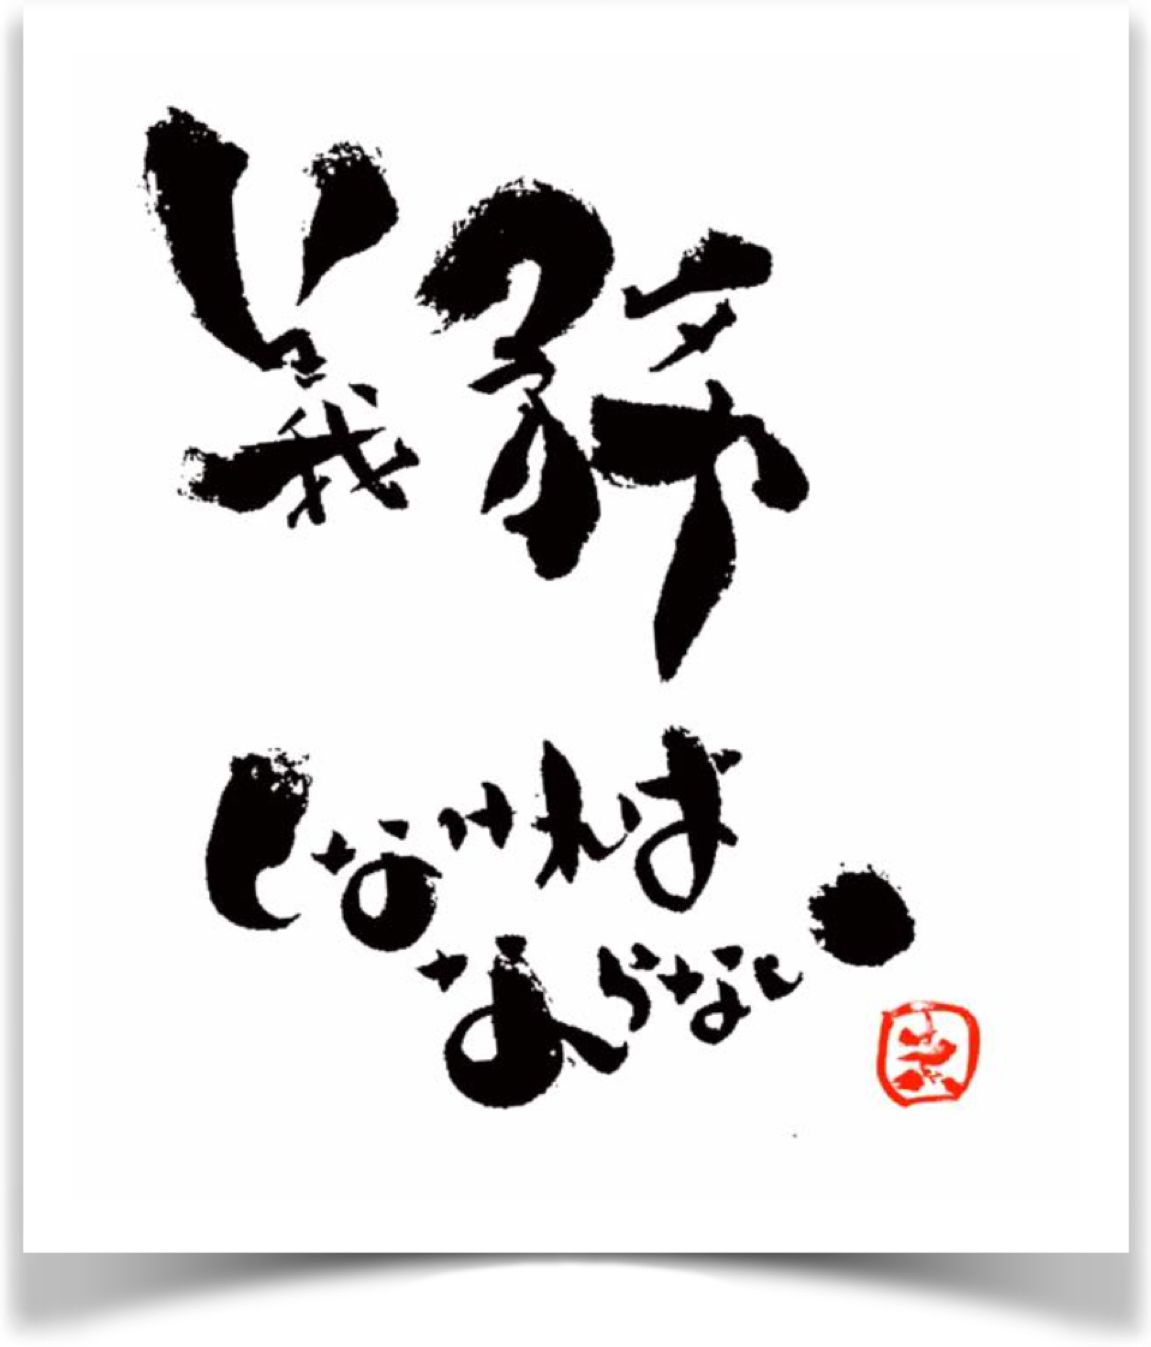 義務
しなければ
ならない。